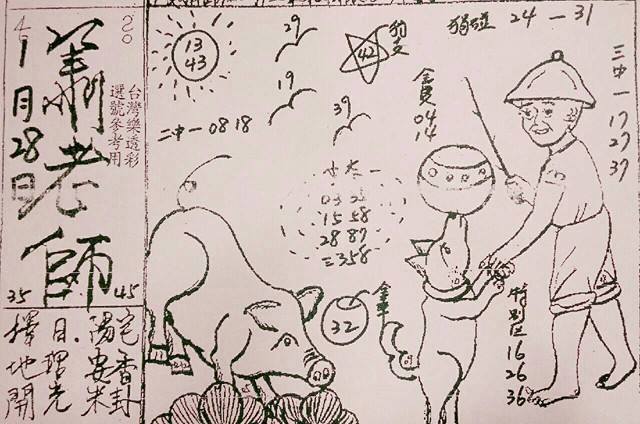 20
4
1月28日
蕭老師
台灣樂透彩
選號參考用
35
45
擇日.陽宅
地理安香
開光米卦
13
43
29
19
39
二中一 08 18
42
獨碰 24 — 31
三中一
17
27
37
04
14
15 58
28 87
三358
32
特別区
16
26
36